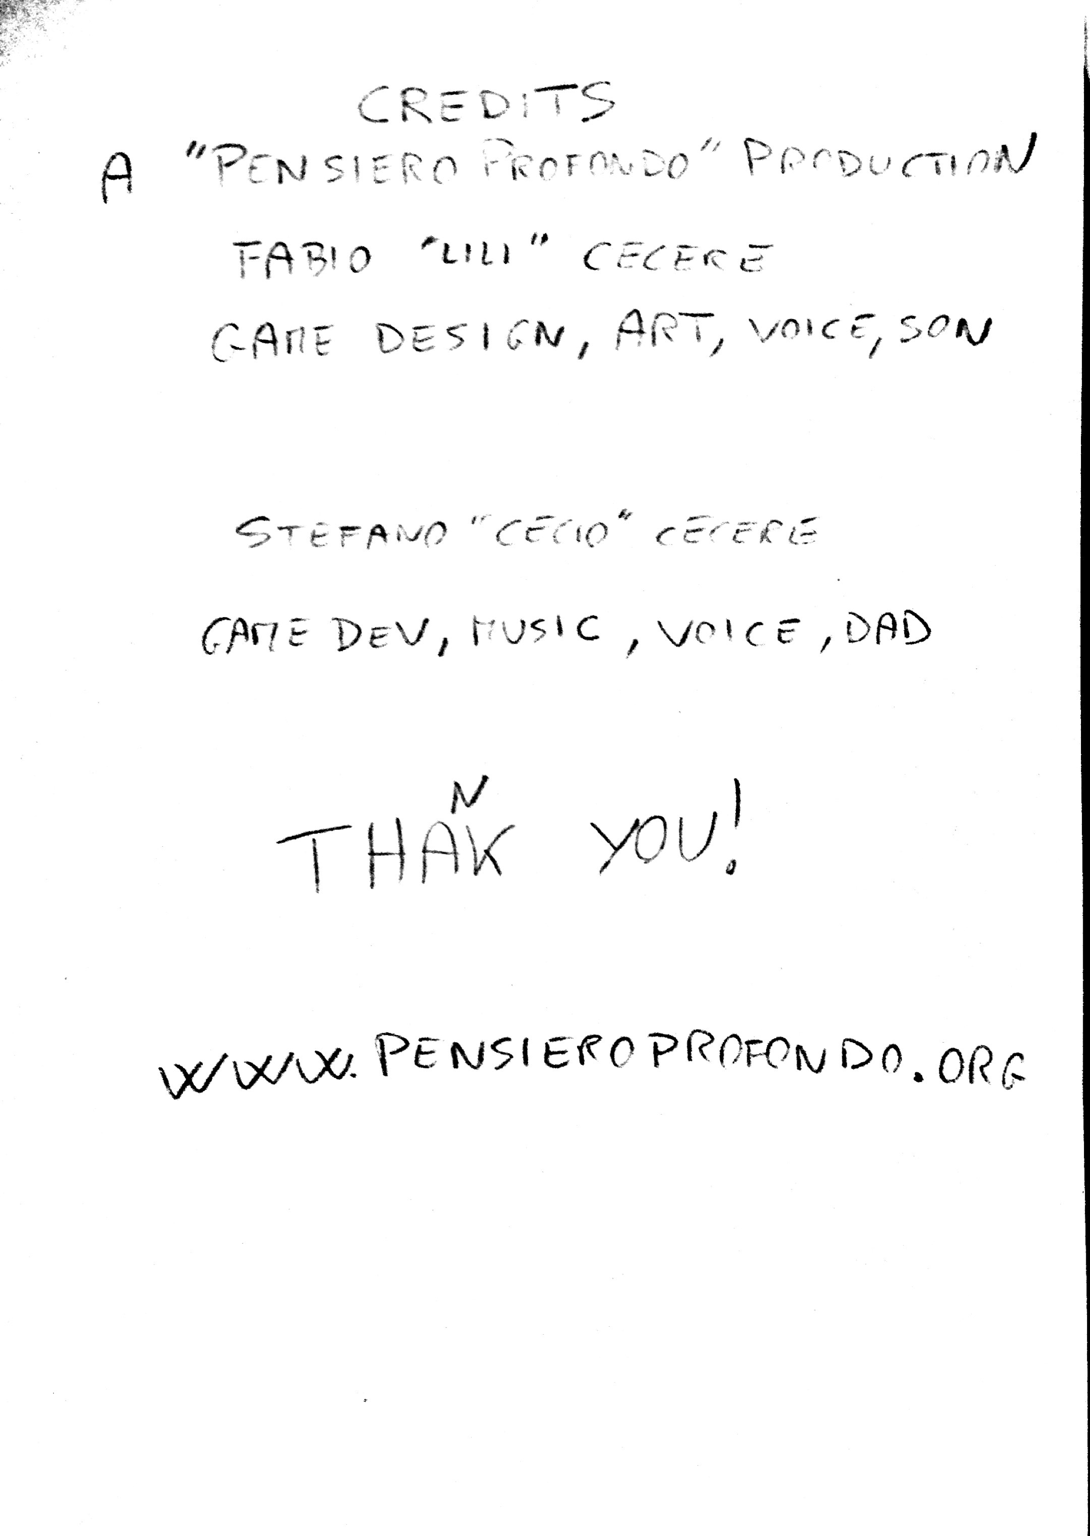 CREDITS
A "PENSIERO PROFONDO" PRODUCTION
FABIO "LILI" CECERE
GAME DESIGN, ART, VOICE, SON
STEFANO "CECIO" CECERE
GAME DEV, MUSIC, VOICE, DAD
THANK YOU!
WWW.PENSIEROPROFONDO.ORG